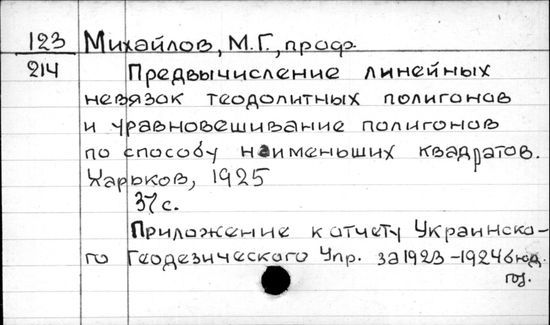 123 Михайлов, М.Г., проф.
214 Предвычисление линейных
невязок теодолитных полигонов
и уравновешивание полигонов
по способу наименьших квадратов.
Харьков, 1925
37 с.
Приложение к отчету Украинско-
го Геодезического Упр. за 1923-1924 бюд.
год.